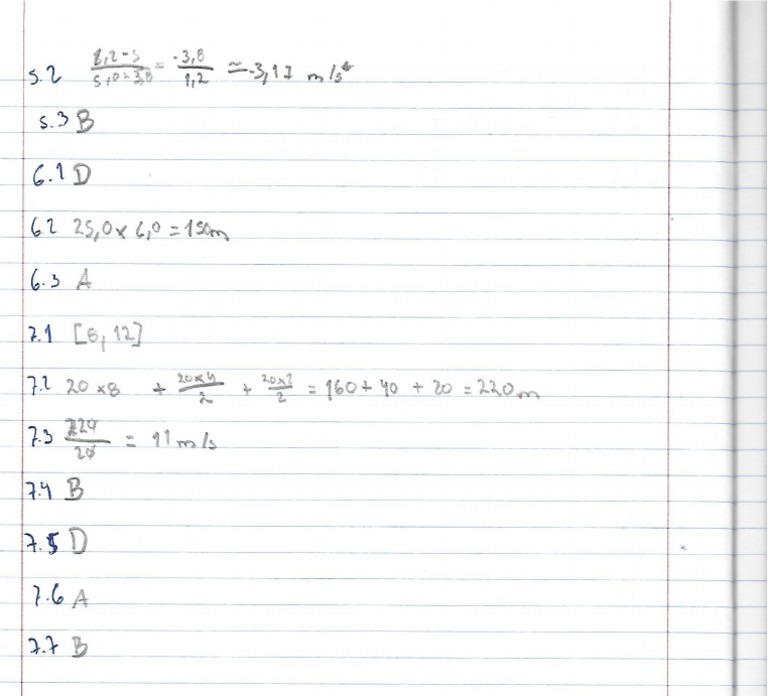 5.2 (1,2-5)/(5,0-3,8) = -3,8/1,2 ≃ -3,17 m/s²
5.3 B
6.1 D
6.2 25,0 x 6,0 = 150m
6.3 A
7.1 [8, 12]
7.2 20 x 8 + (20x4)/2 + (20x2)/2 = 160 + 40 + 20 = 220 m
7.3 220/20 = 11 m/s
7.4 B
7.5 D
7.6 A
7.7 B